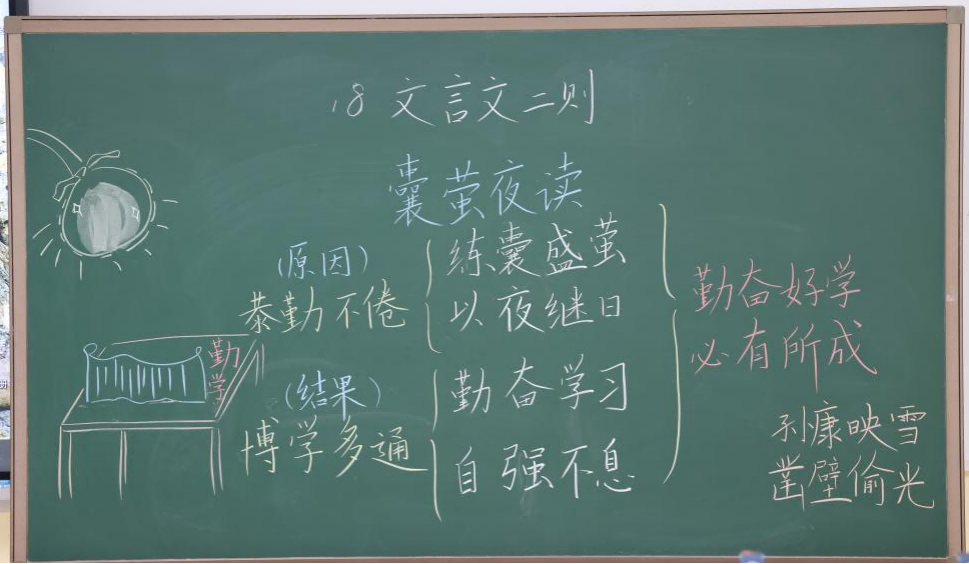 18 文言文二则
囊萤夜读
(原因)
恭勤不倦
练囊盛萤
以夜继日
(结果)
博学多通
勤奋学习
自强不息
勤奋好学
必有所成
孙康映雪
凿壁偷光
勤学